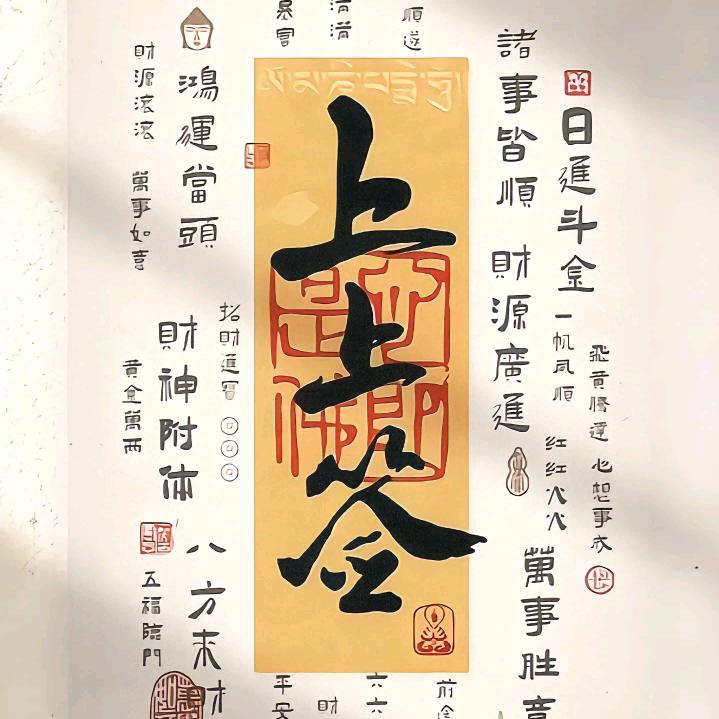 上上签
諸事皆順
財源廣進
日進斗金
一帆风順
飛黄騰達
心想事成
红红火火
萬事胜意
鴻運當頭
財源滚滚
萬事如意
招財進寶
財神附体
黄金萬两
八方来財
五福臨門
平安
財
六六
順遂